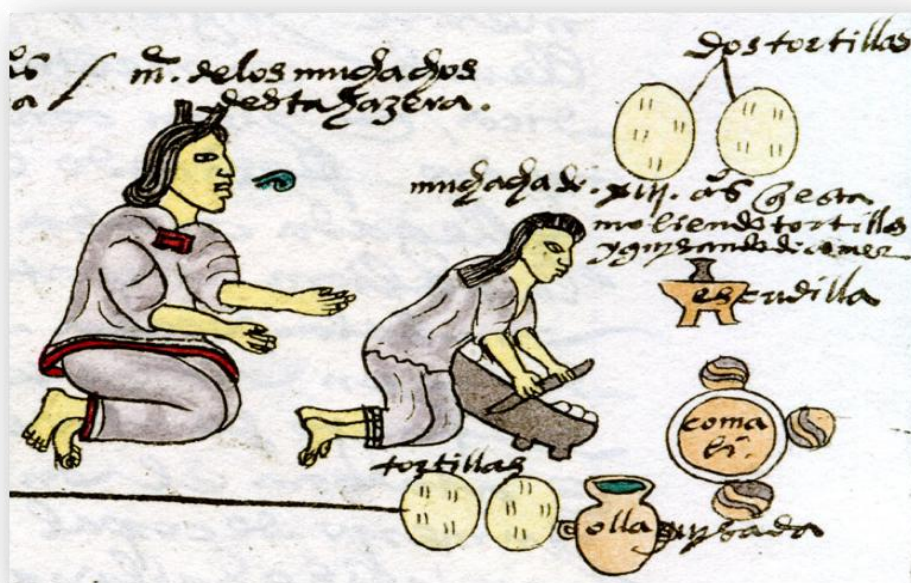 m. de los muchachos
desta hazera.
dos tortillas
muchacha de. xiij. años q esta
moliendo tortillas
y guysando de comer
escudilla
comali.
tortillas
olla guysada